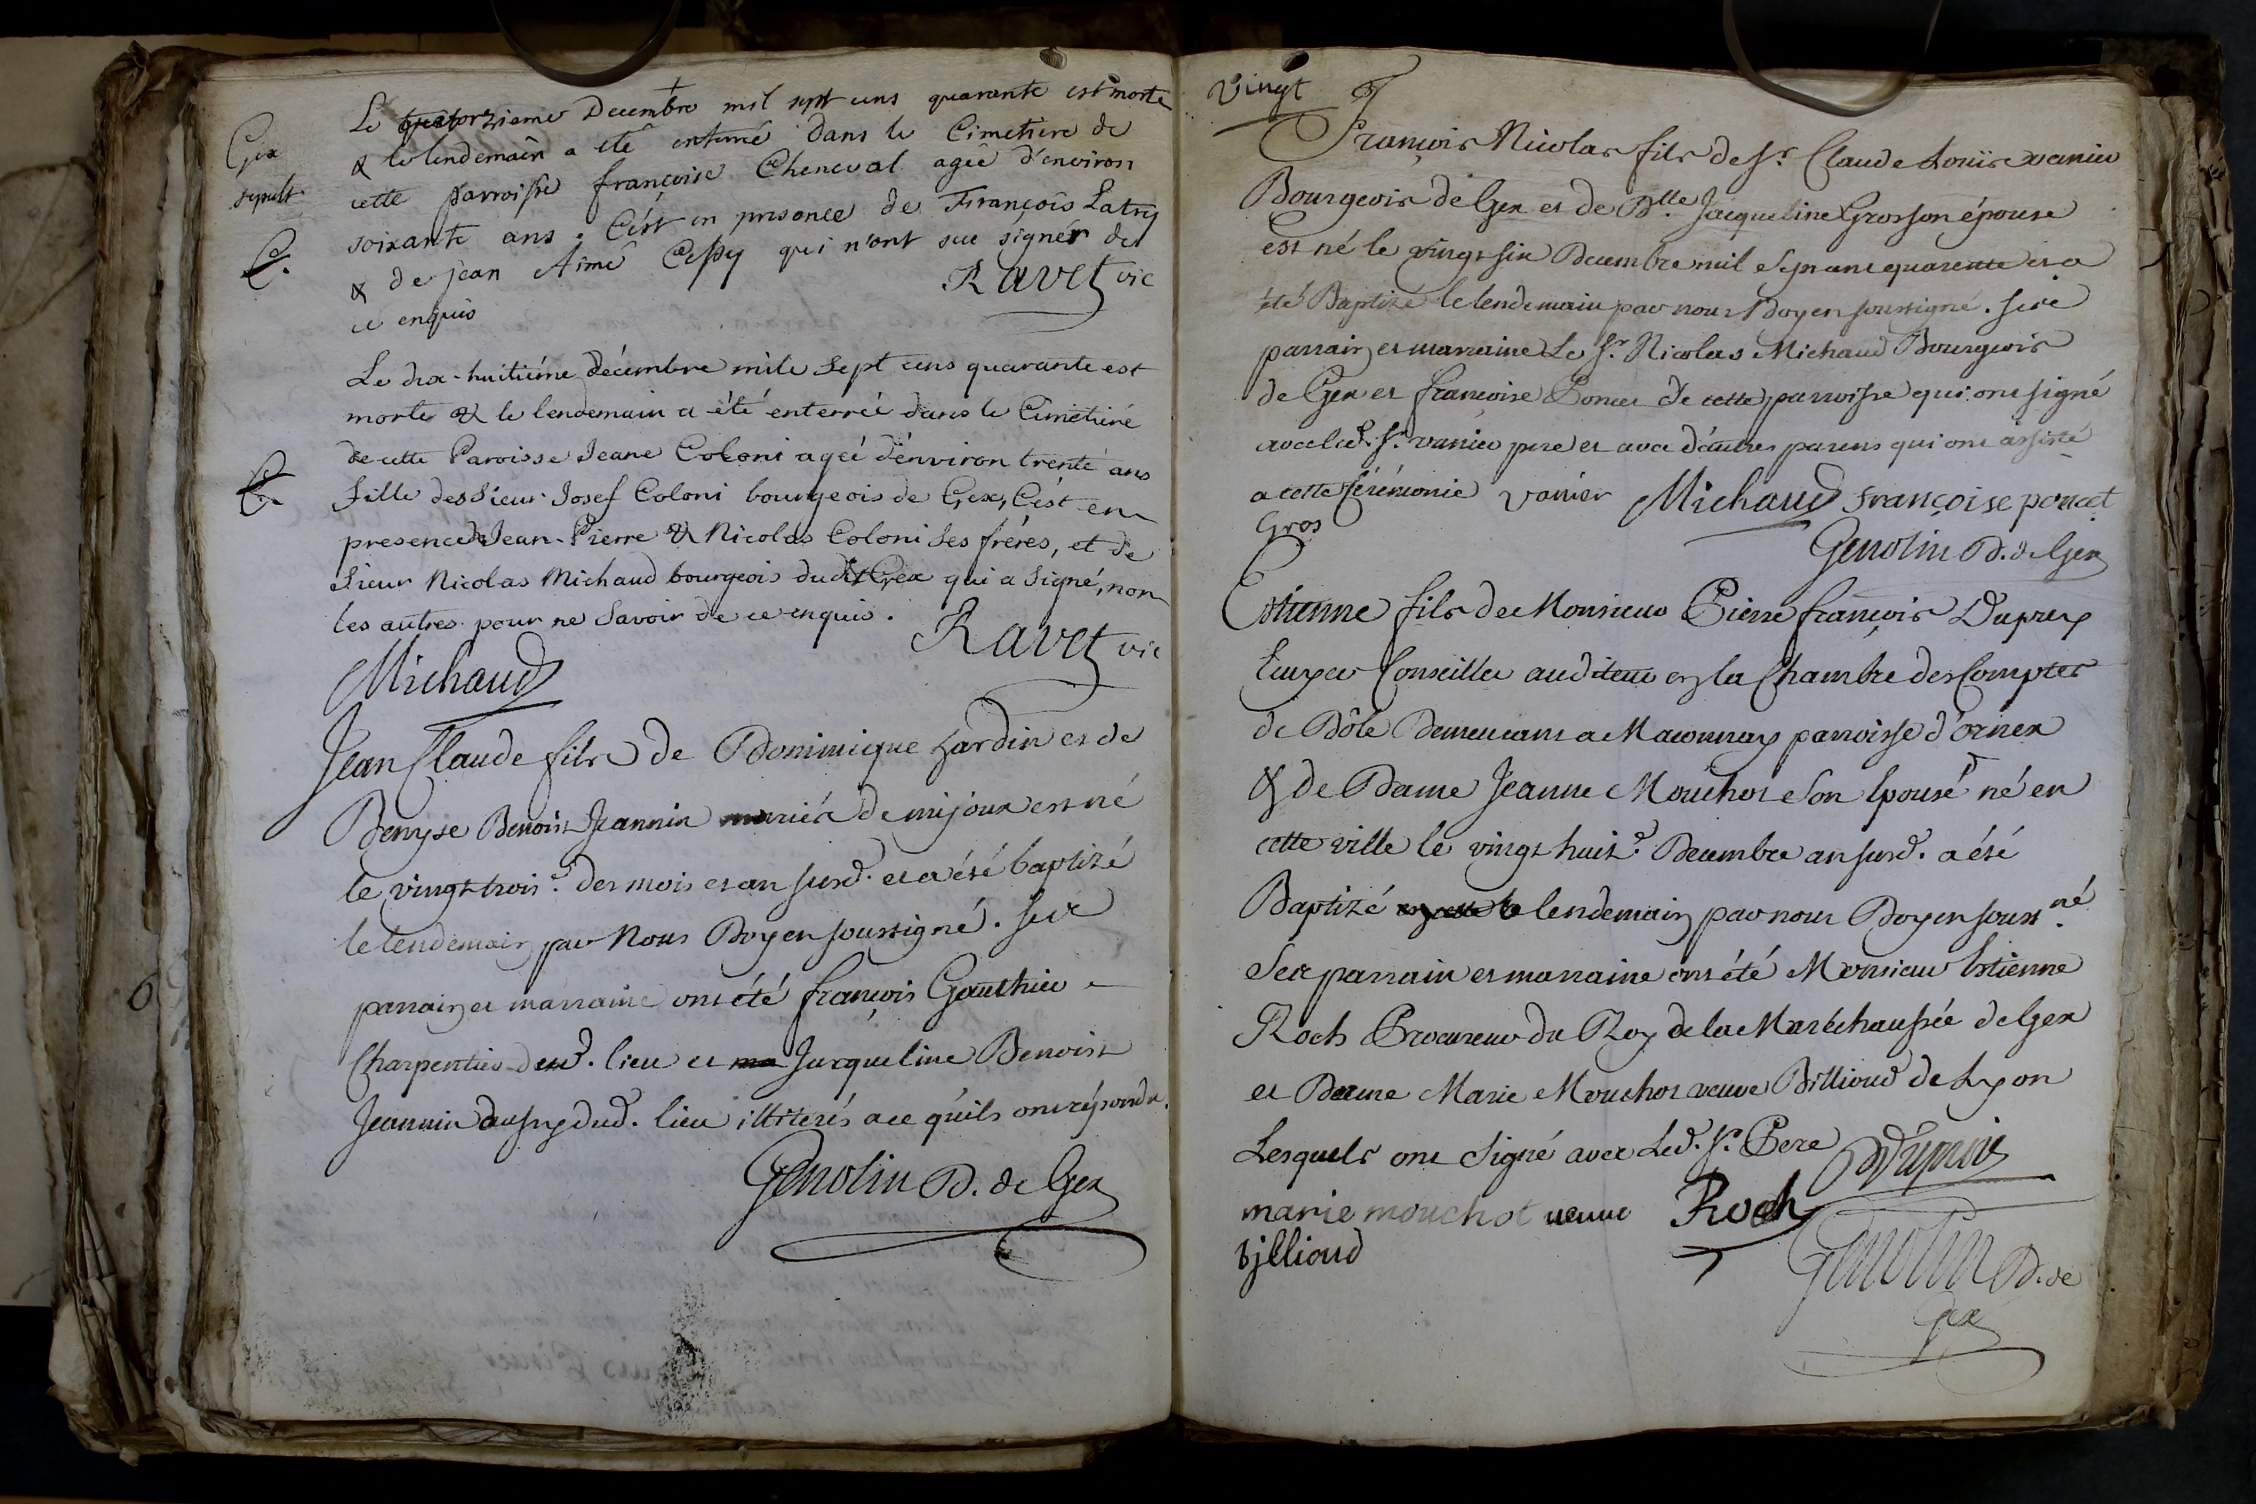 Le quatorzieme Decembre mil sept cens quarante est morte
& le lendemain a eté enterré dans le Cimetiere de
Gex
cette parroisse françoise Cheneval agée d'environ
sepult.
soixante ans. C'est en presence de François Latry
& de jean Aimé Cessy qui n'ont sçu signer de
ce enquis
Ravet vic
Le dix-huitiéme décembre mile sept cens quarante est
morte & le lendemain a été enterréé dans le Cimetiéré
de cette Paroisse Jeane Coloni ageé d'énviron trente ans
fille des Sieur Josef Coloni bourgeois de Gex, C'ést en
presence de Jean-Pierre & Nicolas Coloni ses fréres, et de
Sieur Nicolas Michaud bourgeois dudit Gex qui a Signé, non
les autres pour ne Savoir de ce enquis.
Ravet vic
Michaud
Jean Claude fils de Dominique hardin et de
Denyse Benoist Jeannin mariés de mijoux est né
le vingt trois.e des mois et an susd. et a été baptizé
le lendemain par Nous Doyen soussigné. ses
parrain et marraine ont été françois Gauthier
Charpentier dud. lieu et Jacqueline Benoist
Jeannin dud. lieu illiterés a ce qu'ils ont répondu.
Genolin D. de Gex
Vingt
François Nicolas fils de Sr. Claude Louïs vanier
Bourgeois de Gex et de Dlle Jacqueline Grosson épouse
est né le vingt six Decembre mil Sept cent quarente et a
été Baptizé le lendemain par nous Doyen soussigné. ses
parrain et marraine Le Sr. Nicolas Michaud Bourgeois
de Gex et françoise Poncet de cette parroisse qui ont signé
avec led. Sr. vanier pere et avec d'autres parens qui ont assisté
a cette Cérémonie vanier Michaud françoise poncet
Gros
Genolin D. de Gex
Estienne fils de Monsieur Pierre françois Dupuy
Ecuyer Conseiller auditeur en la Chambre des Comptes
de Dôle Demeurant a Maconnay parroisse d'ornex
& de Dame Jeanne Mouchot Son Epouse né en
cette ville le vingt huit.e Decembre an susd. a été
Baptizé le lendemain par nous Doyen souss.né
Ses parrain et marraine ont été Monsieur Estienne
Roch Procureur du Roy de la Maréchaussée de Gex
et Dame Marie Mouchot veuve Billioud de Lyon
Lesquels ont Signé avec Led. Sr. Pere
marie mouchot veuve Roch
billioud
Genolin D. de
Gex